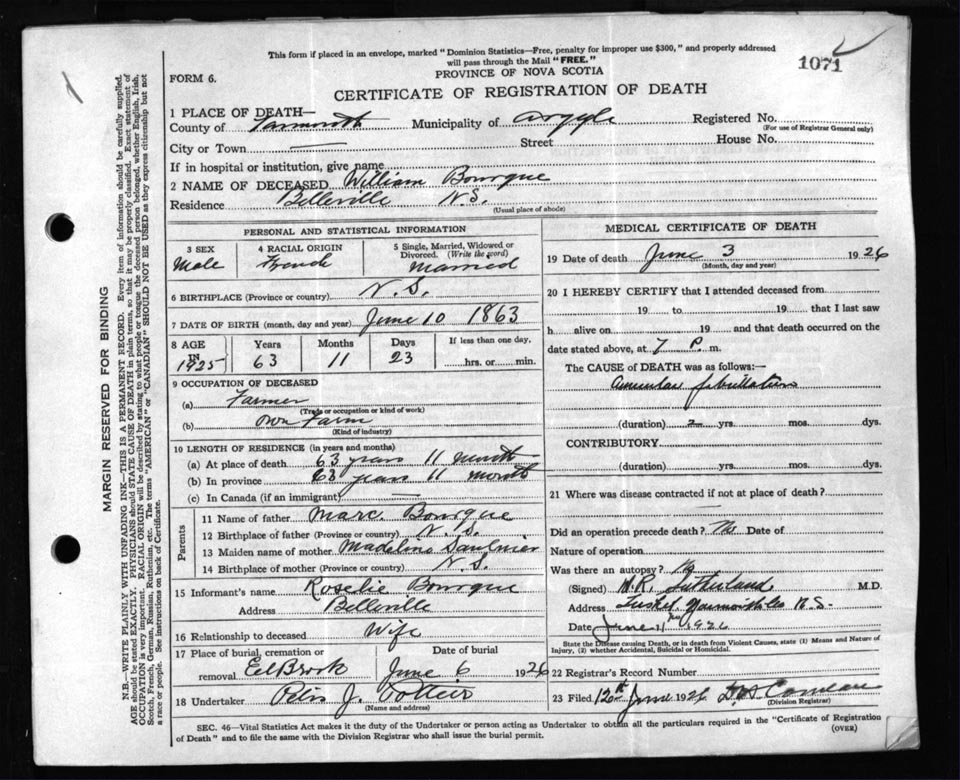 This form if placed in an envelope, marked "Dominion Statistics—Free, penalty for improper use $300," and properly addressed
will pass through the Mail "FREE."
1071
FORM 6.
PROVINCE OF NOVA SCOTIA
CERTIFICATE OF REGISTRATION OF DEATH
1 PLACE OF DEATH—
County of Yarmouth Municipality of Argyle Registered No.
(For use of Registrar General only)
City or Town — Street House No.
If in hospital or institution, give name
2 NAME OF DECEASED William Bourque
Residence Belleville N.S.
(Usual place of abode)
PERSONAL AND STATISTICAL INFORMATION
3 SEX 4 RACIAL ORIGIN 5 Single, Married, Widowed or
Divorced. (Write the word)
Male French Married
6 BIRTHPLACE (Province or country) N.S.
7 DATE OF BIRTH (month, day and year) June 10 1863
8 AGE Years Months Days If less than one day,
IN
1925 63 11 23 hrs. or min.
9 OCCUPATION OF DECEASED
(a) Farmer
(Trade or occupation or kind of work)
(b) Own Farm
(Kind of industry)
10 LENGTH OF RESIDENCE (in years and months)
(a) At place of death 63 years 11 month
(b) In province 63 years 11 month
(c) In Canada (if an immigrant) —
Parents
11 Name of father Marc. Bourque
12 Birthplace of father (Province or country) N.S.
13 Maiden name of mother Madeline Saulnier
14 Birthplace of mother (Province or country) N.S.
15 Informant's name Roselie Bourque
Address Belleville
16 Relationship to deceased Wife
17 Place of burial, cremation or Date of burial
removal Eel Brook June 6 1926
18 Undertaker J. Pottier
(Name and address)
MEDICAL CERTIFICATE OF DEATH
19 Date of death June 3 1926
(Month, day and year)
20 I HEREBY CERTIFY that I attended deceased from
19 to 19 that I last saw
h alive on 19 and that death occurred on the
date stated above, at 7 P. m.
The CAUSE OF DEATH was as follows:—
Auricular fibrillation
(duration) 2 yrs. mos. dys.
CONTRIBUTORY
(duration) yrs. mos. dys.
21 Where was disease contracted if not at place of death?
Did an operation precede death? No Date of
Nature of operation
Was there an autopsy? No
(Signed) H.R. Sutherland M.D.
Address Tusket Yarmouth Co N.S.
Date June 11th 1926
State the Disease causing Death, or in death from Violent Causes, state (1) Means and Nature of
Injury, (2) whether Accidental, Suicidal or Homicidal.
22 Registrar's Record Number
23 Filed 12th June 1926 Comeau
(Division Registrar)
SEC. 46—Vital Statistics Act makes it the duty of the Undertaker or person acting as Undertaker to obtain all the particulars required in the "Certificate of Registration
of Death" and to file the same with the Division Registrar who shall issue the burial permit. (OVER)
MARGIN RESERVED FOR BINDING
N.B.—WRITE PLAINLY WITH UNFADING INK—THIS IS A PERMANENT RECORD. Every item of information should be carefully supplied.
AGE should be stated EXACTLY. PHYSICIANS should STATE CAUSE OF DEATH in plain terms, so that it may be properly classified. Exact statement of
OCCUPATION is very important. RACIAL ORIGIN will be described by stating to what people or tongue the deceased person belonged, whether English, Irish,
Scotch, French, German, Russian, Ruthenian, etc. The terms "AMERICAN" or "CANADIAN" SHOULD NOT BE USED as they express citizenship but not
a race or people. See instructions on back of Certificate.